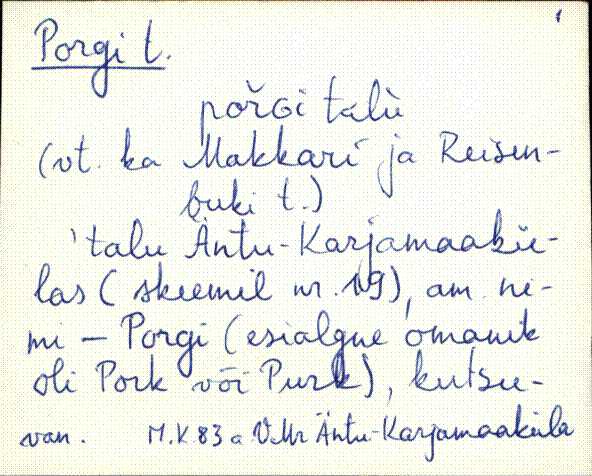 Porgi t.
pořGi talù
(vt. ka Makkari ja Reisen-
buki t.)
'talu Äntu-Karjamaakü-
las (skeemil nr. 19), am. ni-
mi – Porgi (esialgne omanik
oli Pork või Purk), kutsu-
van. M.K. 83 a V.Mr Äntu-Karjamaaküla